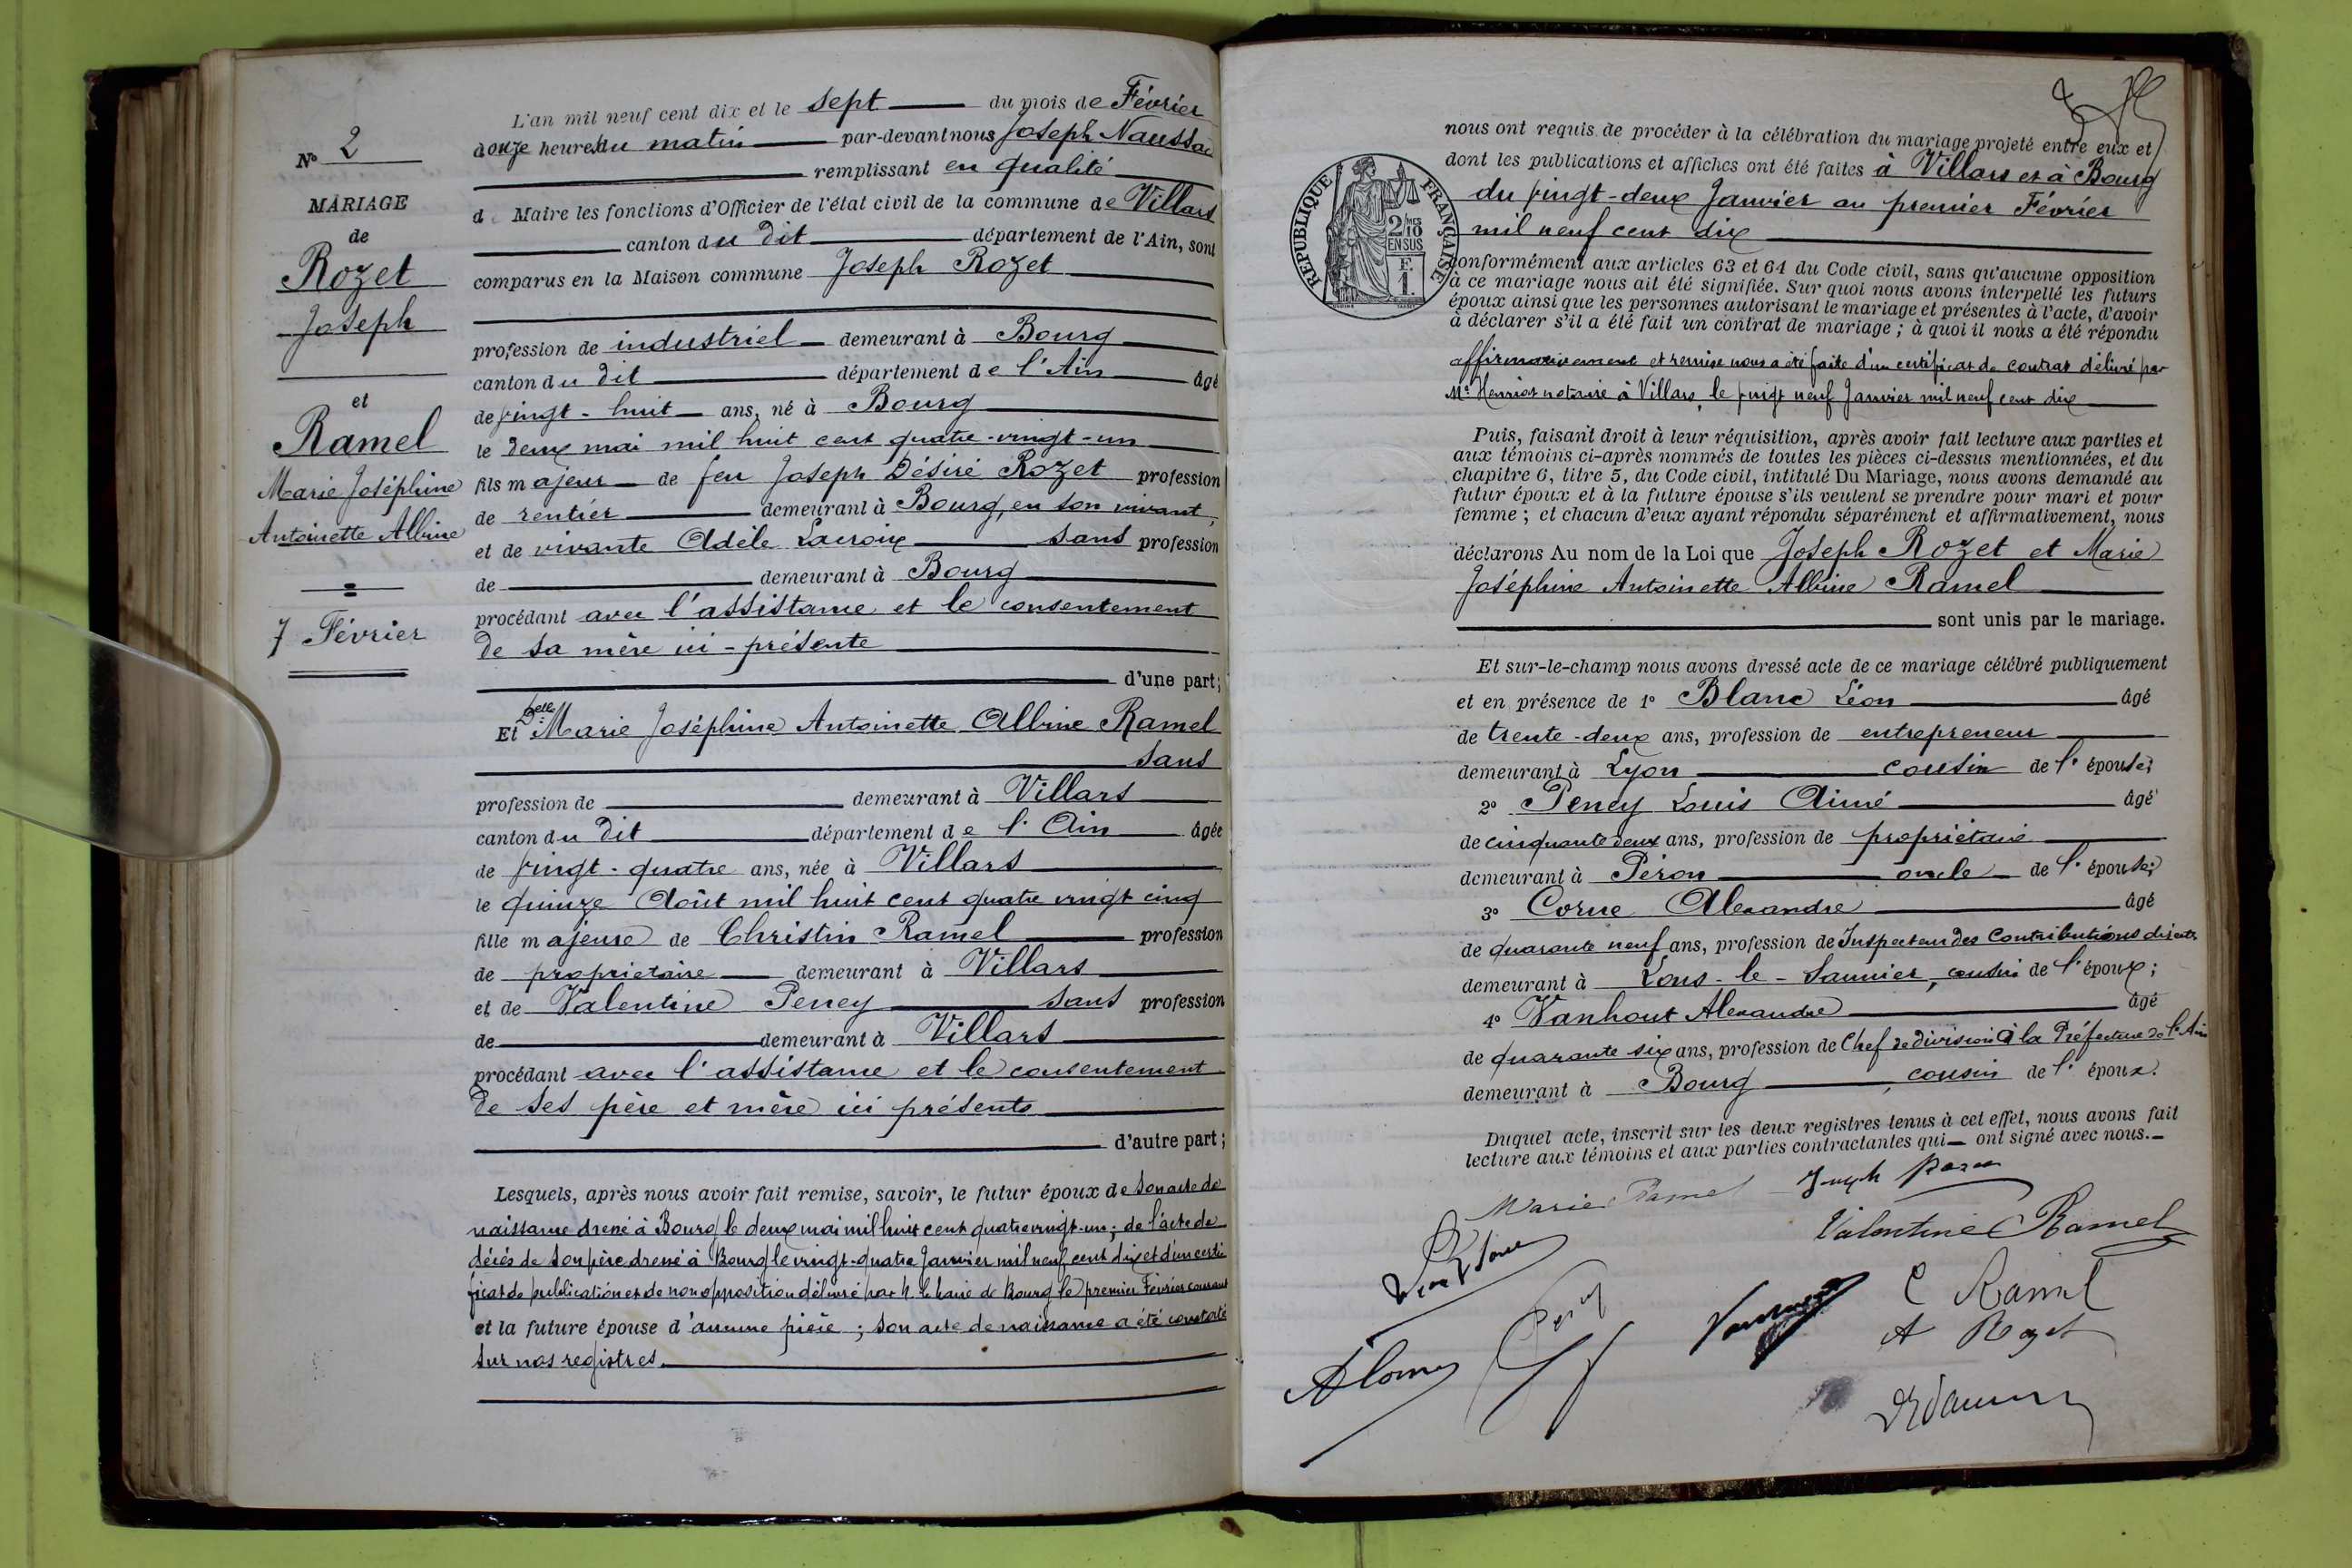 N° 2
MARIAGE
de
Rozet
Joseph
et
Ramel
Marie Joséphine
Antoinette Albine
7 Février
L'an mil neuf cent dix et le sept du mois de Février
à onze heures du matin par-devant nous Joseph Naussac
remplissant en qualité
d Maire les fonctions d'Officier de l'état civil de la commune de Villars
canton du dit département de l'Ain, sont
comparus en la Maison commune Joseph Rozet
profession de industriel demeurant à Bourg
canton du dit département de l'Ain âgé
de vingt-huit ans, né à Bourg
le deux mai mil huit cent quatre-vingt-un
fils majeur de feu Joseph Désiré Rozet profession
de rentier demeurant à Bourg, en son vivant,
et de vivante Adèle Lacroix sans profession
de demeurant à Bourg
procédant avec l'assistance et le consentement
de sa mère ici-présente
d'une part;
Et Delle Marie Joséphine Antoinette Albine Ramel
sans
profession de demeurant à Villars
canton du dit département de l'Ain âgée
de vingt-quatre ans, née à Villars
le quinze Août mil huit cent quatre vingt cinq
fille majeure de Christin Ramel profession
de propriétaire demeurant à Villars
et de Valentine Peney sans profession
de demeurant à Villars
procédant avec l'assistance et le consentement
de ses père et mère ici présents
d'autre part;
Lesquels, après nous avoir fait remise, savoir, le futur époux de son acte de
naissance dressé à Bourg le deux mai mil huit cent quatre vingt-un; de l'acte de
décès de son père dressé à Bourg le vingt-quatre Janvier mil neuf cent dix et d'un certi
ficat de publication et de non opposition délivré par M. le Maire de Bourg le premier Février courant
et la future épouse d'aucune pièce; son acte de naissance a été constaté
sur nos registres.
nous ont requis de procéder à la célébration du mariage projeté entre eux et
dont les publications et affiches ont été faites à Villars et à Bourg
du vingt-deux Janvier au premier Février
mil neuf cent dix
RÉPUBLIQUE FRANÇAISE
2/10
EN SUS
F.
1.
conformément aux articles 63 et 64 du Code civil, sans qu'aucune opposition
à ce mariage nous ait été signifiée. Sur quoi nous avons interpellé les futurs
époux ainsi que les personnes autorisant le mariage et présentes à l'acte, d'avoir
à déclarer s'il a été fait un contrat de mariage; à quoi il nous a été répondu
affirmativement et remise nous a été faite d'un certificat de contrat délivré par
Me Henriot notaire à Villars, le vingt neuf Janvier mil neuf cent dix
Puis, faisant droit à leur réquisition, après avoir fait lecture aux parties et
aux témoins ci-après nommés de toutes les pièces ci-dessus mentionnées, et du
chapitre 6, titre 5, du Code civil, intitulé Du Mariage, nous avons demandé au
futur époux et à la future épouse s'ils veulent se prendre pour mari et pour
femme; et chacun d'eux ayant répondu séparément et affirmativement, nous
déclarons Au nom de la Loi que Joseph Rozet et Marie
Joséphine Antoinette Albine Ramel
sont unis par le mariage.
Et sur-le-champ nous avons dressé acte de ce mariage célébré publiquement
et en présence de 1° Blanc Léon âgé
de trente-deux ans, profession de entrepreneur
demeurant à Lyon cousin de l'épouse;
2° Peney Louis Aimé âgé
de cinquante deux ans, profession de propriétaire
demeurant à Péron oncle de l'épouse;
3° Corne Alexandre âgé
de quarante neuf ans, profession de Inspecteur des Contributions directes
demeurant à Lons-le-Saunier, cousin de l'époux;
4° Vanhout Alexandre âgé
de quarante six ans, profession de Chef de division à la Préfecture de l'Ain
demeurant à Bourg, cousin de l'époux.
Duquel acte, inscrit sur les deux registres tenus à cet effet, nous avons fait
lecture aux témoins et aux parties contractantes qui ont signé avec nous.
Marie Ramel Joseph Rozet
Valentine Ramel
C Ramel
A Rozet